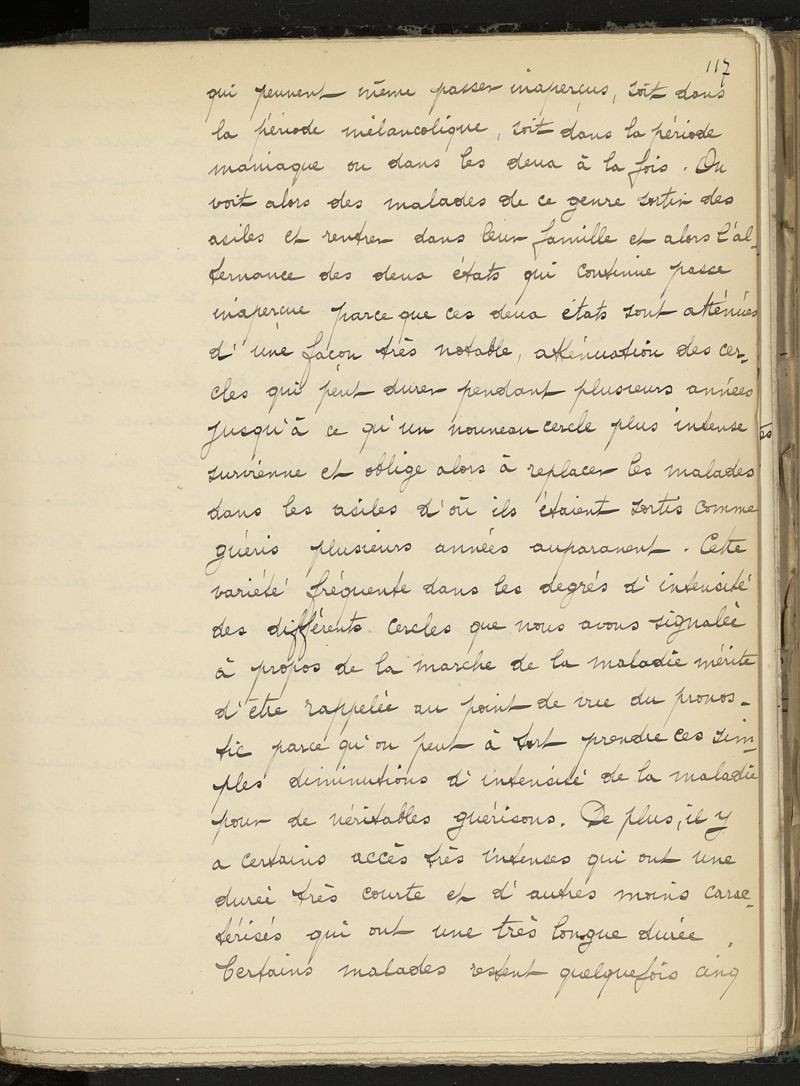 117
qui peuvent même passer inaperçus, soit dans
la période mélancolique, soit dans la période
maniaque ou dans les deux à la fois. On
voit alors des malades de ce genre sortir des
asiles et rentrer dans leur famille et alors l'al-
ternance des deux états qui continue passe
inaperçue parce que ces deux états sont atténués
d'une façon très notable, atténuation des cer-
cles qui peut durer pendant plusieurs années
jusqu'à ce qu'un nouveau cercle plus intense
survienne et oblige alors à replacer les malades
dans les asiles d'où ils étaient sortis comme
guéris plusieurs années auparavent. Cette
variété fréquente dans les degrés d'intensité
des différents cercles que nous avons signalée
à propos de la marche de la maladie mérite
d'être rappelée au point de vue du pronos-
tic parce qu'on peut à tort prendre ces sim-
ples diminutions d'intensité de la maladie
pour de véritables guérisons. De plus, il y
a certains accès très intenses qui ont une
durée très courte et d'autres moins carac-
térisés qui ont une très longue durée.
Certains malades restent quelquefois cinq